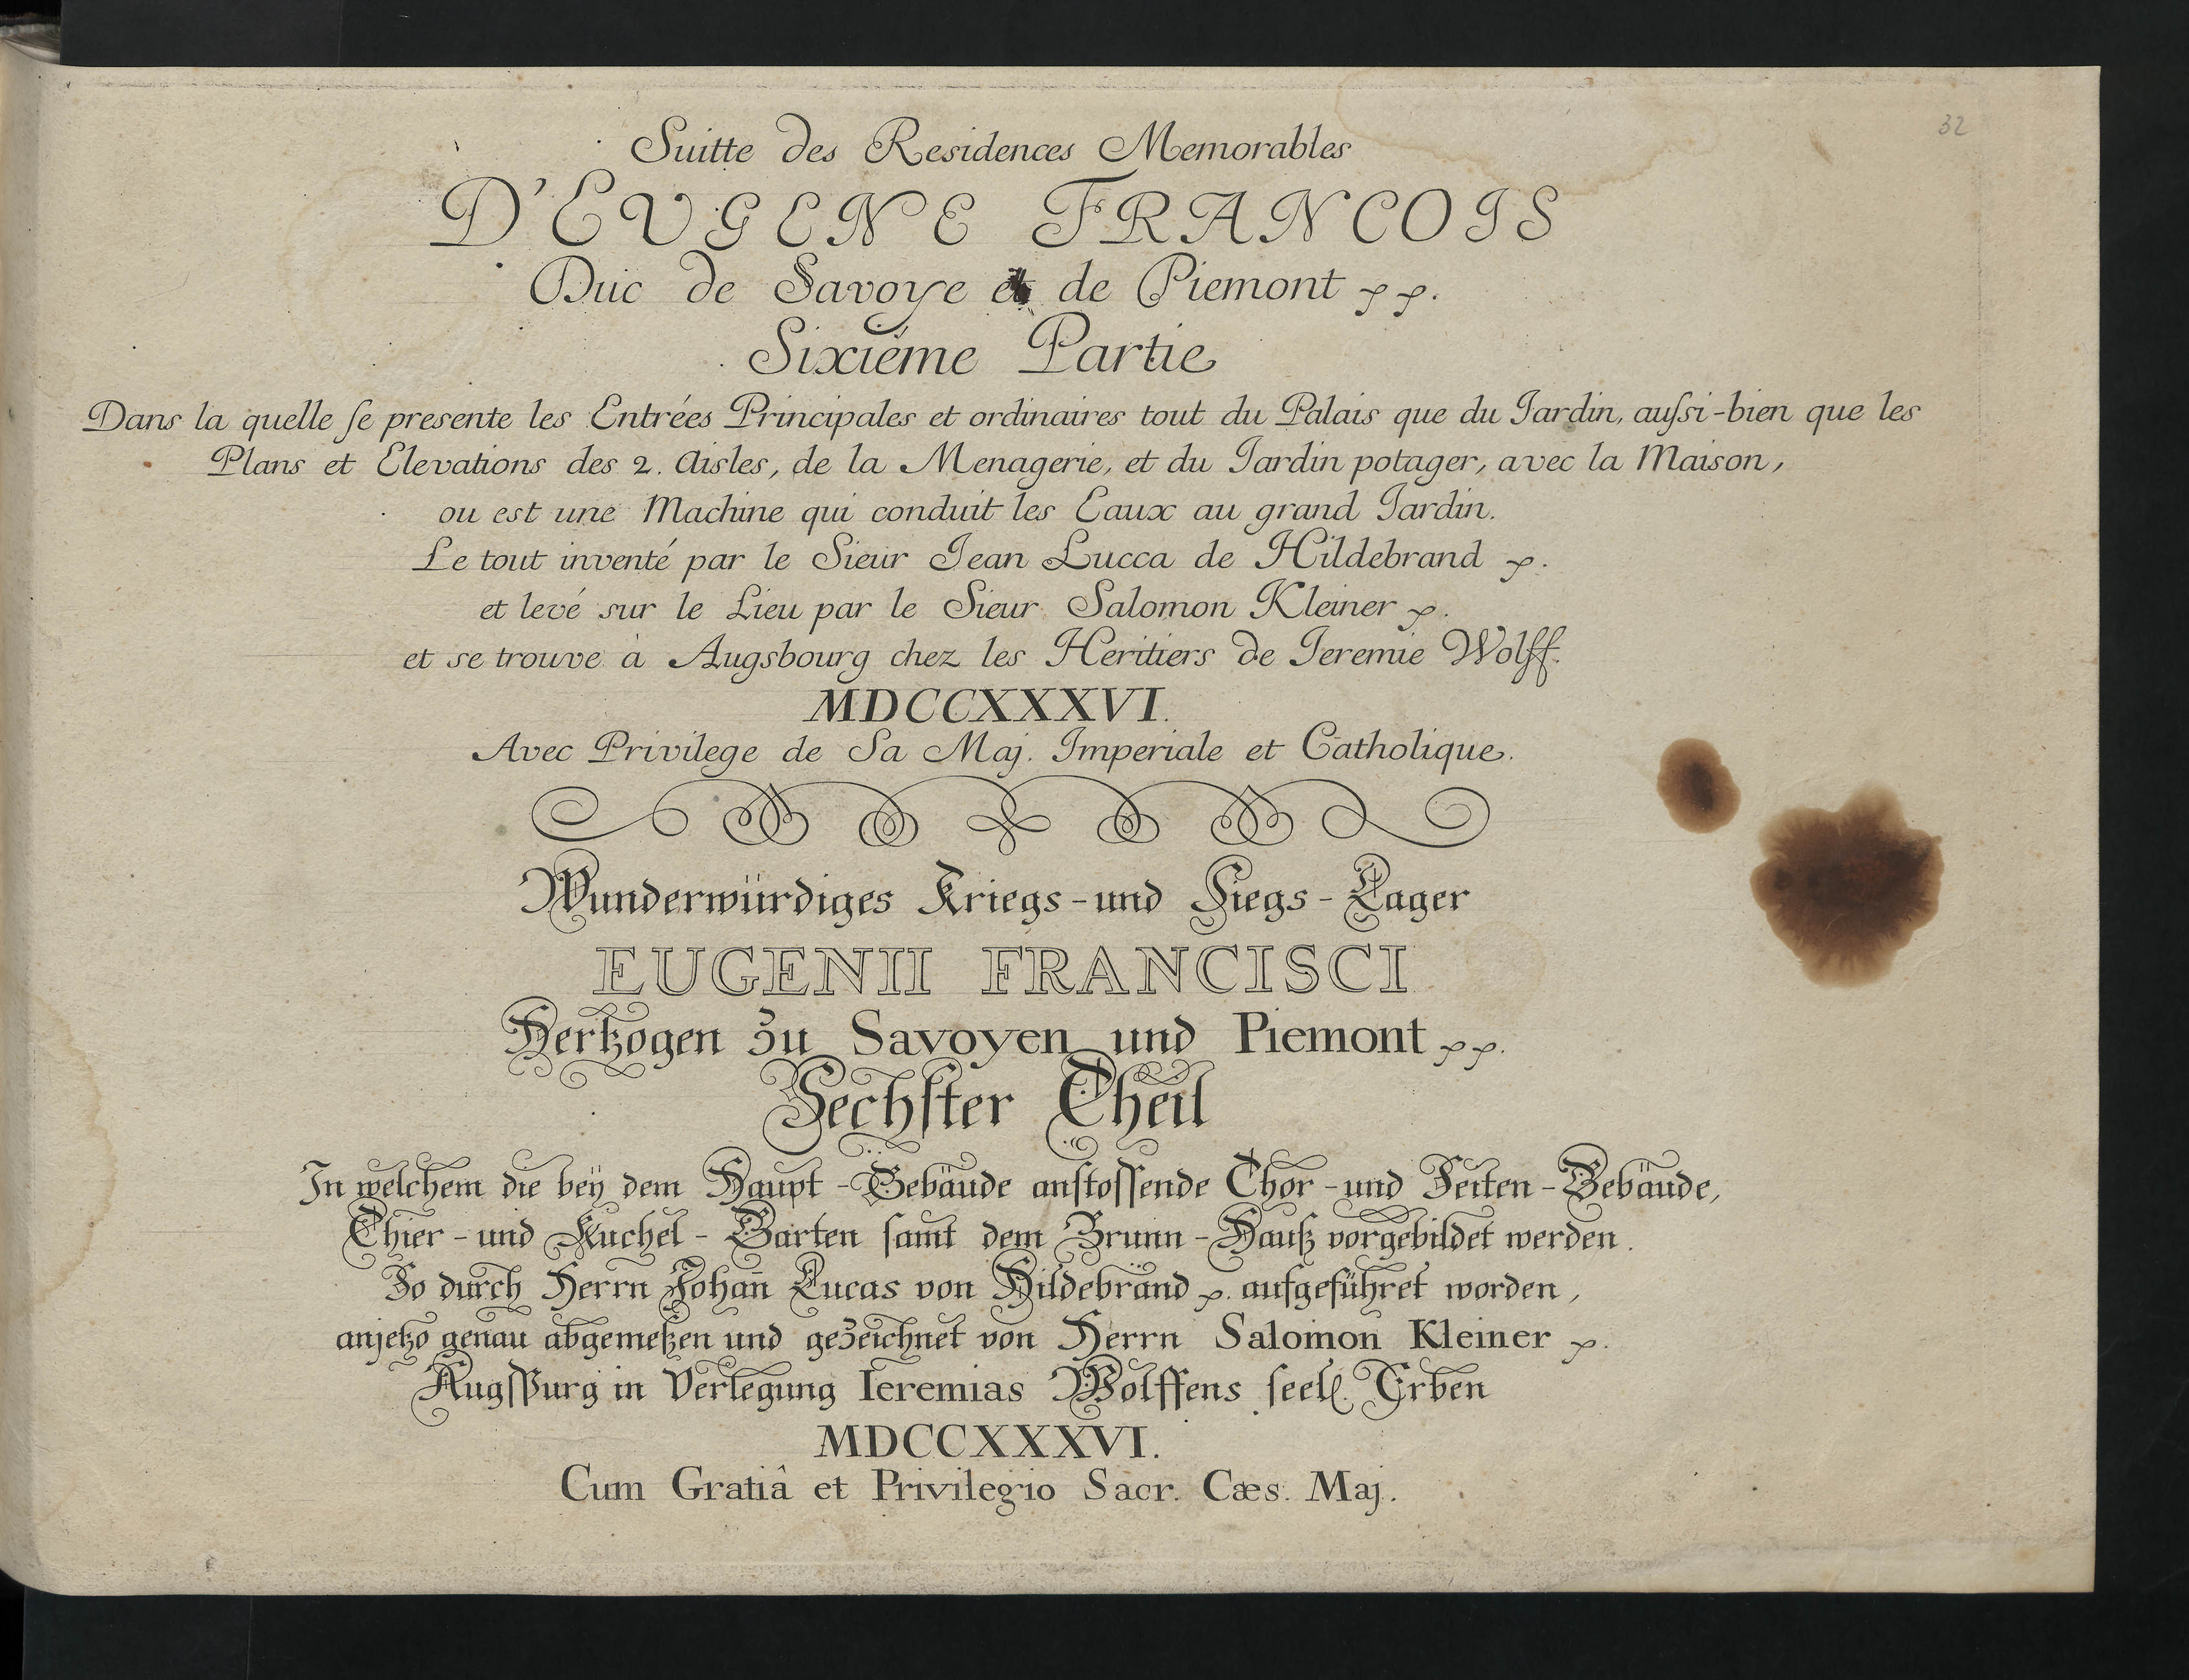 32
Suitte des Residences Memorables
D'EVGENE FRANCOIS
Duc de Savoye et de Piemont pp.
Sixiéme Partie
Dans la quelle ſe presente les Entrées Principales et ordinaires tout du Palais que du Jardin, auſsi-bien que les
Plans et Elevations des 2. Aisles, de la Menagerie, et du Jardin potager, avec la Maison,
ou est une Machine qui conduit les Eaux au grand Jardin.
Le tout inventé par le Sieur Jean Lucca de Hildebrand p.
et levé sur le Lieu par le Sieur Salomon Kleiner p.
et se trouve à Augsbourg chez les Heritiers de Jeremie Wolff.
MDCCXXXVI.
Avec Privilege de Sa Maj. Imperiale et Catholique.
Wunderwürdiges Kriegs-und Siegs-Lager
EUGENII FRANCISCI
Hertzogen zu Savoyen und Piemont pp.
Sechſter Theil
In welchem die beÿ dem Haupt-Gebäude anſtoſſende Thor-und Seiten-Gebäude,
Thier-und Kuchel-Garten ſamt dem Brunn-Hauß vorgebildet werden.
So durch Herrn Johañ Lucas von Hildebrand p. aufgeführet worden,
anjetzo genau abgemeßen und gezeichnet von Herrn Salomon Kleiner p.
Augſpurg in Verlegung Ieremias Wolffens ſeel. Erben
MDCCXXXVI.
Cum Gratiâ et Privilegio Sacr. Cæs. Maj.